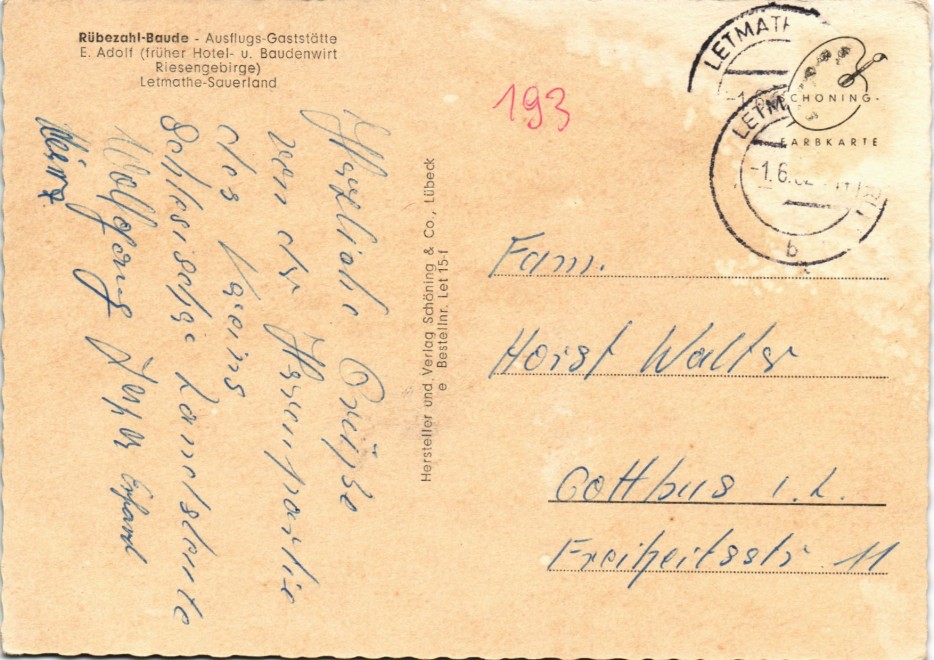 Rübezahl-Baude - Ausflugs-Gaststätte
E. Adolf (früher Hotel- u. Baudenwirt
Riesengebirge)
Letmathe-Sauerland
Herzliche Grüße
von der Herrenpartie
des Vereins
Schlesische Landsleute
Wolfgang
Erhard
Heinz
Hersteller und Verlag Schöning & Co., Lübeck
e Bestellnr. Let 15-f
193
LETMATH
-1.6
SCHÖNING-
FARBKARTE
LETM
-1.6.62
b
Fam.
Horst Walter
Cottbus i. L.
Freiheitsstr 11